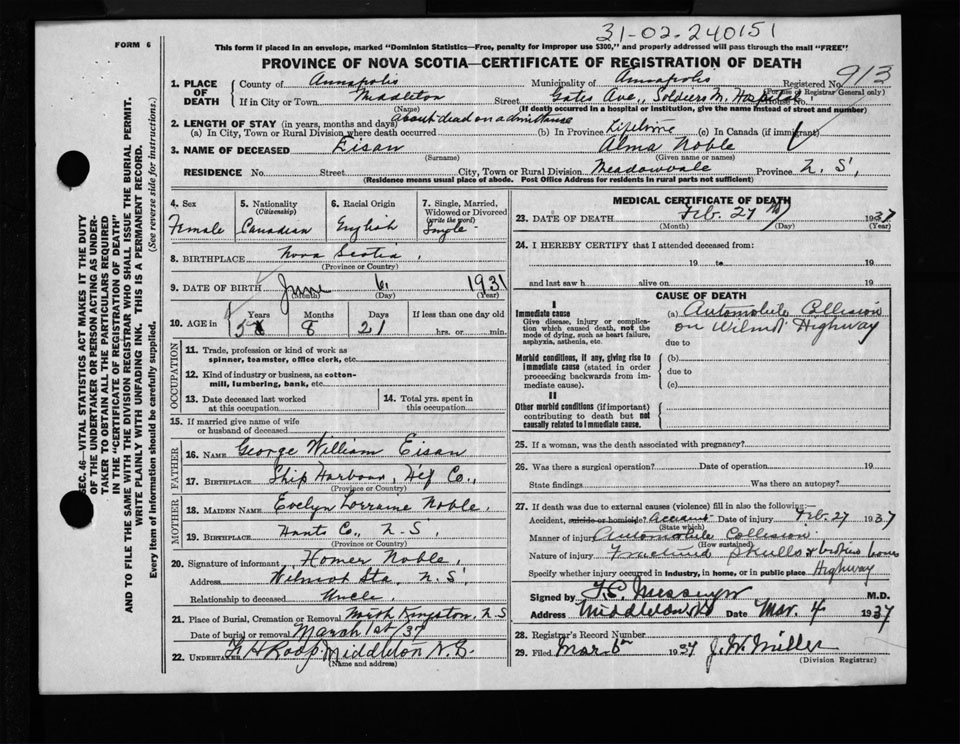 31-02-240151
FORM 6
This form if placed in an envelope, marked "Dominion Statistics—Free, penalty for improper use $300," and properly addressed will pass through the mail "FREE"
PROVINCE OF NOVA SCOTIA—CERTIFICATE OF REGISTRATION OF DEATH
SEC. 46—VITAL STATISTICS ACT MAKES IT THE DUTY
OF THE UNDERTAKER OR PERSON ACTING AS UNDER-
TAKER TO OBTAIN ALL THE PARTICULARS REQUIRED
IN THE "CERTIFICATE OF REGISTRATION OF DEATH"
AND TO FILE THE SAME WITH THE DIVISION REGISTRAR WHO SHALL ISSUE THE BURIAL PERMIT.
WRITE PLAINLY WITH UNFADING INK. THIS IS A PERMANENT RECORD.
Every item of Information should be carefully supplied. (See reverse side for instructions.)
1. PLACE OF DEATH County of Annapolis Municipality of Annapolis Registered No. 913
(For use of Registrar General only)
If in City or Town Middleton Street Gates Ave., Soldiers M. Hospital House No.
(Name) (If death occurred in a hospital or institution, give the name instead of street and number)
2. LENGTH OF STAY (in years, months and days) About dead on admittance
(a) In City, Town or Rural Division where death occurred (b) In Province Lifetime (c) In Canada (if immigrant)
3. NAME OF DECEASED Eisan Alma Noble
(Surname) (Given name or names)
RESIDENCE No. Street City, Town or Rural Division Meadowvale Province N. S.
(Residence means usual place of abode. Post Office Address for residents in rural parts not sufficient)
4. Sex 5. Nationality (Citizenship) 6. Racial Origin 7. Single, Married, Widowed or Divorced (write the word)
Female Canadian English Single
8. BIRTHPLACE Nova Scotia
(Province or Country)
9. DATE OF BIRTH June 6, 1931
(Month) (Day) (Year)
10. AGE in Years Months Days If less than one day old
5 8 21 hrs. or min.
OCCUPATION
11. Trade, profession or kind of work as
spinner, teamster, office clerk, etc.
12. Kind of industry or business, as cotton-
mill, lumbering, bank, etc.
13. Date deceased last worked at this occupation 14. Total yrs. spent in this occupation
15. If married give name of wife
or husband of deceased
FATHER
16. NAME George William Eisan
17. BIRTHPLACE Ship Harbour, Hfx Co.,
(Province or Country)
MOTHER
18. MAIDEN NAME Evelyn Lorraine Noble,
19. BIRTHPLACE Hants Co., N. S.
(Province or Country)
20. Signature of informant Homer Noble
Address Wilmot Sta, N. S.
Relationship to deceased Uncle.
21. Place of Burial, Cremation or Removal North Kingston, N.S
Date of burial or removal March 1st/37
22. UNDERTAKER F H Roop, Middleton N.S.
(Name and address)
MEDICAL CERTIFICATE OF DEATH
23. DATE OF DEATH Feb. 27 1937
(Month) (Day) (Year)
24. I HEREBY CERTIFY that I attended deceased from:
19 to 19
and last saw h alive on 19
CAUSE OF DEATH
I
Immediate cause (a) Automobile Collision
on Wilmot Highway
Give disease, injury or compli-
cation which caused death, not the
mode of dying, such as heart failure,
asphyxia, asthenia, etc.
due to
Morbid conditions, if any, giving rise to (b)
immediate cause (stated in order due to
proceeding backwards from im-
mediate cause). (c)
II
Other morbid conditions (if important)
contributing to death but not
causally related to immediate cause.
25. If a woman, was the death associated with pregnancy?
26. Was there a surgical operation? Date of operation 19
State findings Was there an autopsy?
27. If death was due to external causes (violence) fill in also the following:—
Accident, suicide or homicide? Accident Date of injury Feb. 27 1937
(State which)
Manner of injury Automobile Collision
(How sustained)
Nature of injury Fractured Skull & broken bones
Specify whether injury occurred in industry, in home, or in public place Highway
Signed by M.D.
Address Middleton Date Mar. 4 1937
28. Registrar's Record Number
29. Filed Mar. 1937 J. W. Miller
(Division Registrar)